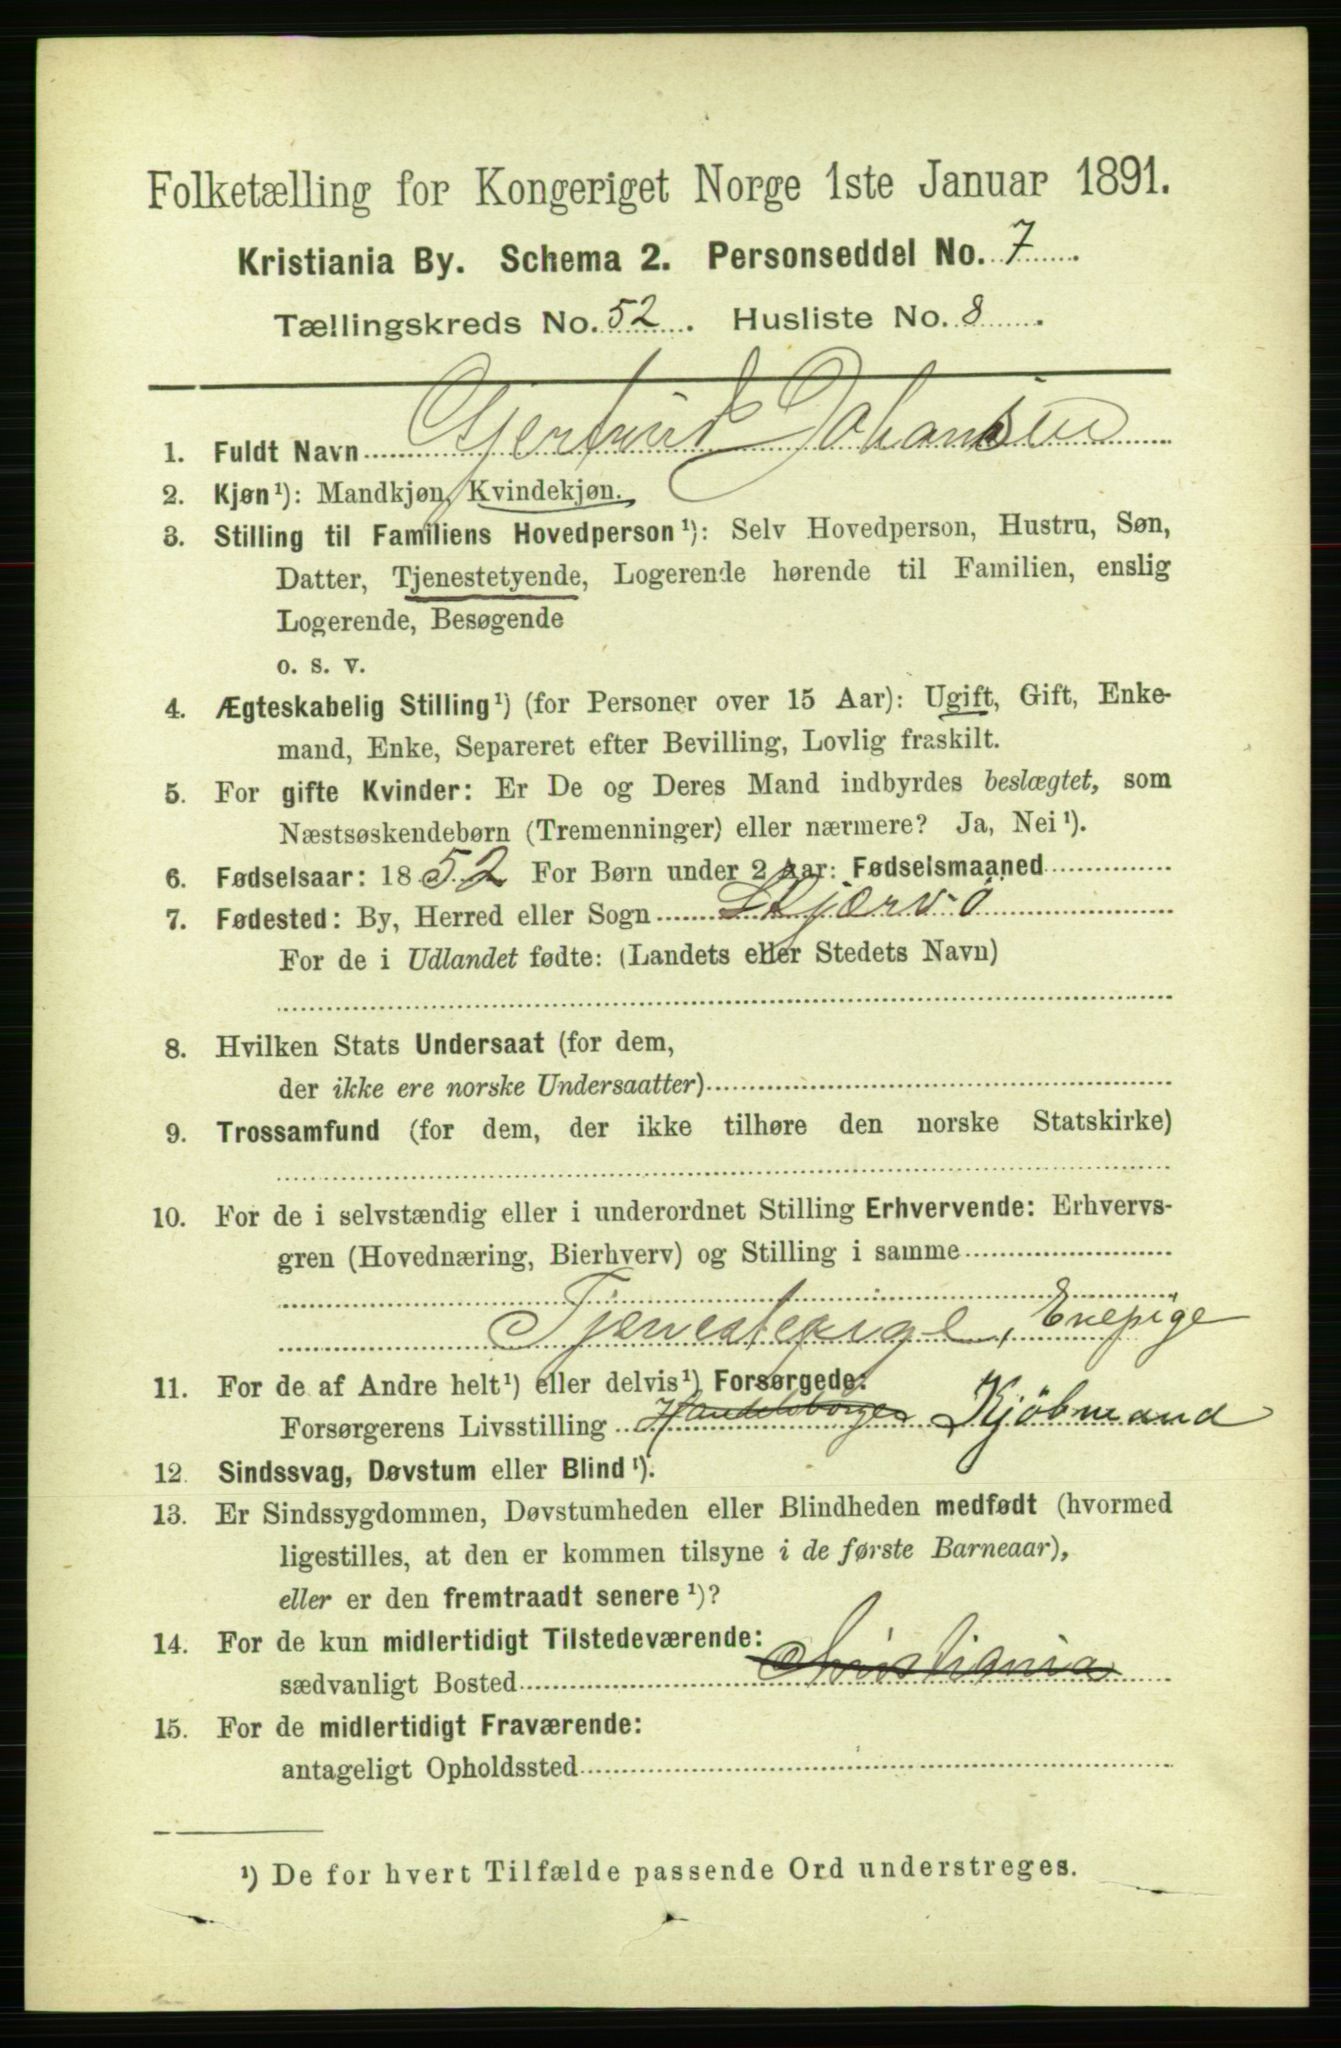 Folketælling for Kongeriget Norge 1ste Januar 1891.
Kristiania By. Schema 2. Personseddel No. 7
Tællingskreds No. 52. Husliste No. 8.
1. Fuldt Navn Gjertrud Johansen
2. Kjøn¹): Mandkjøn, Kvindekjøn.
3. Stilling til Familiens Hovedperson¹): Selv Hovedperson, Hustru, Søn,
Datter, Tjenestetyende, Logerende hørende til Familien, enslig
Logerende, Besøgende
o. s. v.
4. Ægteskabelig Stilling¹) (for Personer over 15 Aar): Ugift, Gift, Enke-
mand, Enke, Separeret efter Bevilling, Lovlig fraskilt.
5. For gifte Kvinder: Er De og Deres Mand indbyrdes beslægtet, som
Næstsøskendebørn (Tremenninger) eller nærmere? Ja, Nei¹).
6. Fødselsaar: 1852 For Børn under 2 Aar: Fødselsmaaned
7. Fødested: By, Herred eller Sogn Skjærvö
For de i Udlandet fødte: (Landets eller Stedets Navn)
8. Hvilken Stats Undersaat (for dem,
der ikke ere norske Undersaatter)
9. Trossamfund (for dem, der ikke tilhøre den norske Statskirke)
10. For de i selvstændig eller i underordnet Stilling Erhvervende: Erhvervs-
gren (Hovednæring, Bierhverv) og Stilling i samme
Tjenestepige, Enepige
11. For de af Andre helt¹) eller delvis¹) Forsørgede:
Forsørgerens Livsstilling Handelsborger Kjöbmand
12. Sindssvag, Døvstum eller Blind¹).
13. Er Sindssygdommen, Døvstumheden eller Blindheden medfødt (hvormed
ligestilles, at den er kommen tilsyne i de første Barneaar),
eller er den fremtraadt senere¹)?
14. For de kun midlertidigt Tilstedeværende:
sædvanligt Bosted Christiania
15. For de midlertidigt Fraværende:
antageligt Opholdssted
¹) De for hvert Tilfælde passende Ord understreges.